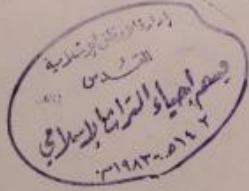 إدارة الأوقاف الإسلامية
القدس
قسم إحياء التراث الإسلامي
١٤٠٢هـ - ١٩٨٣م